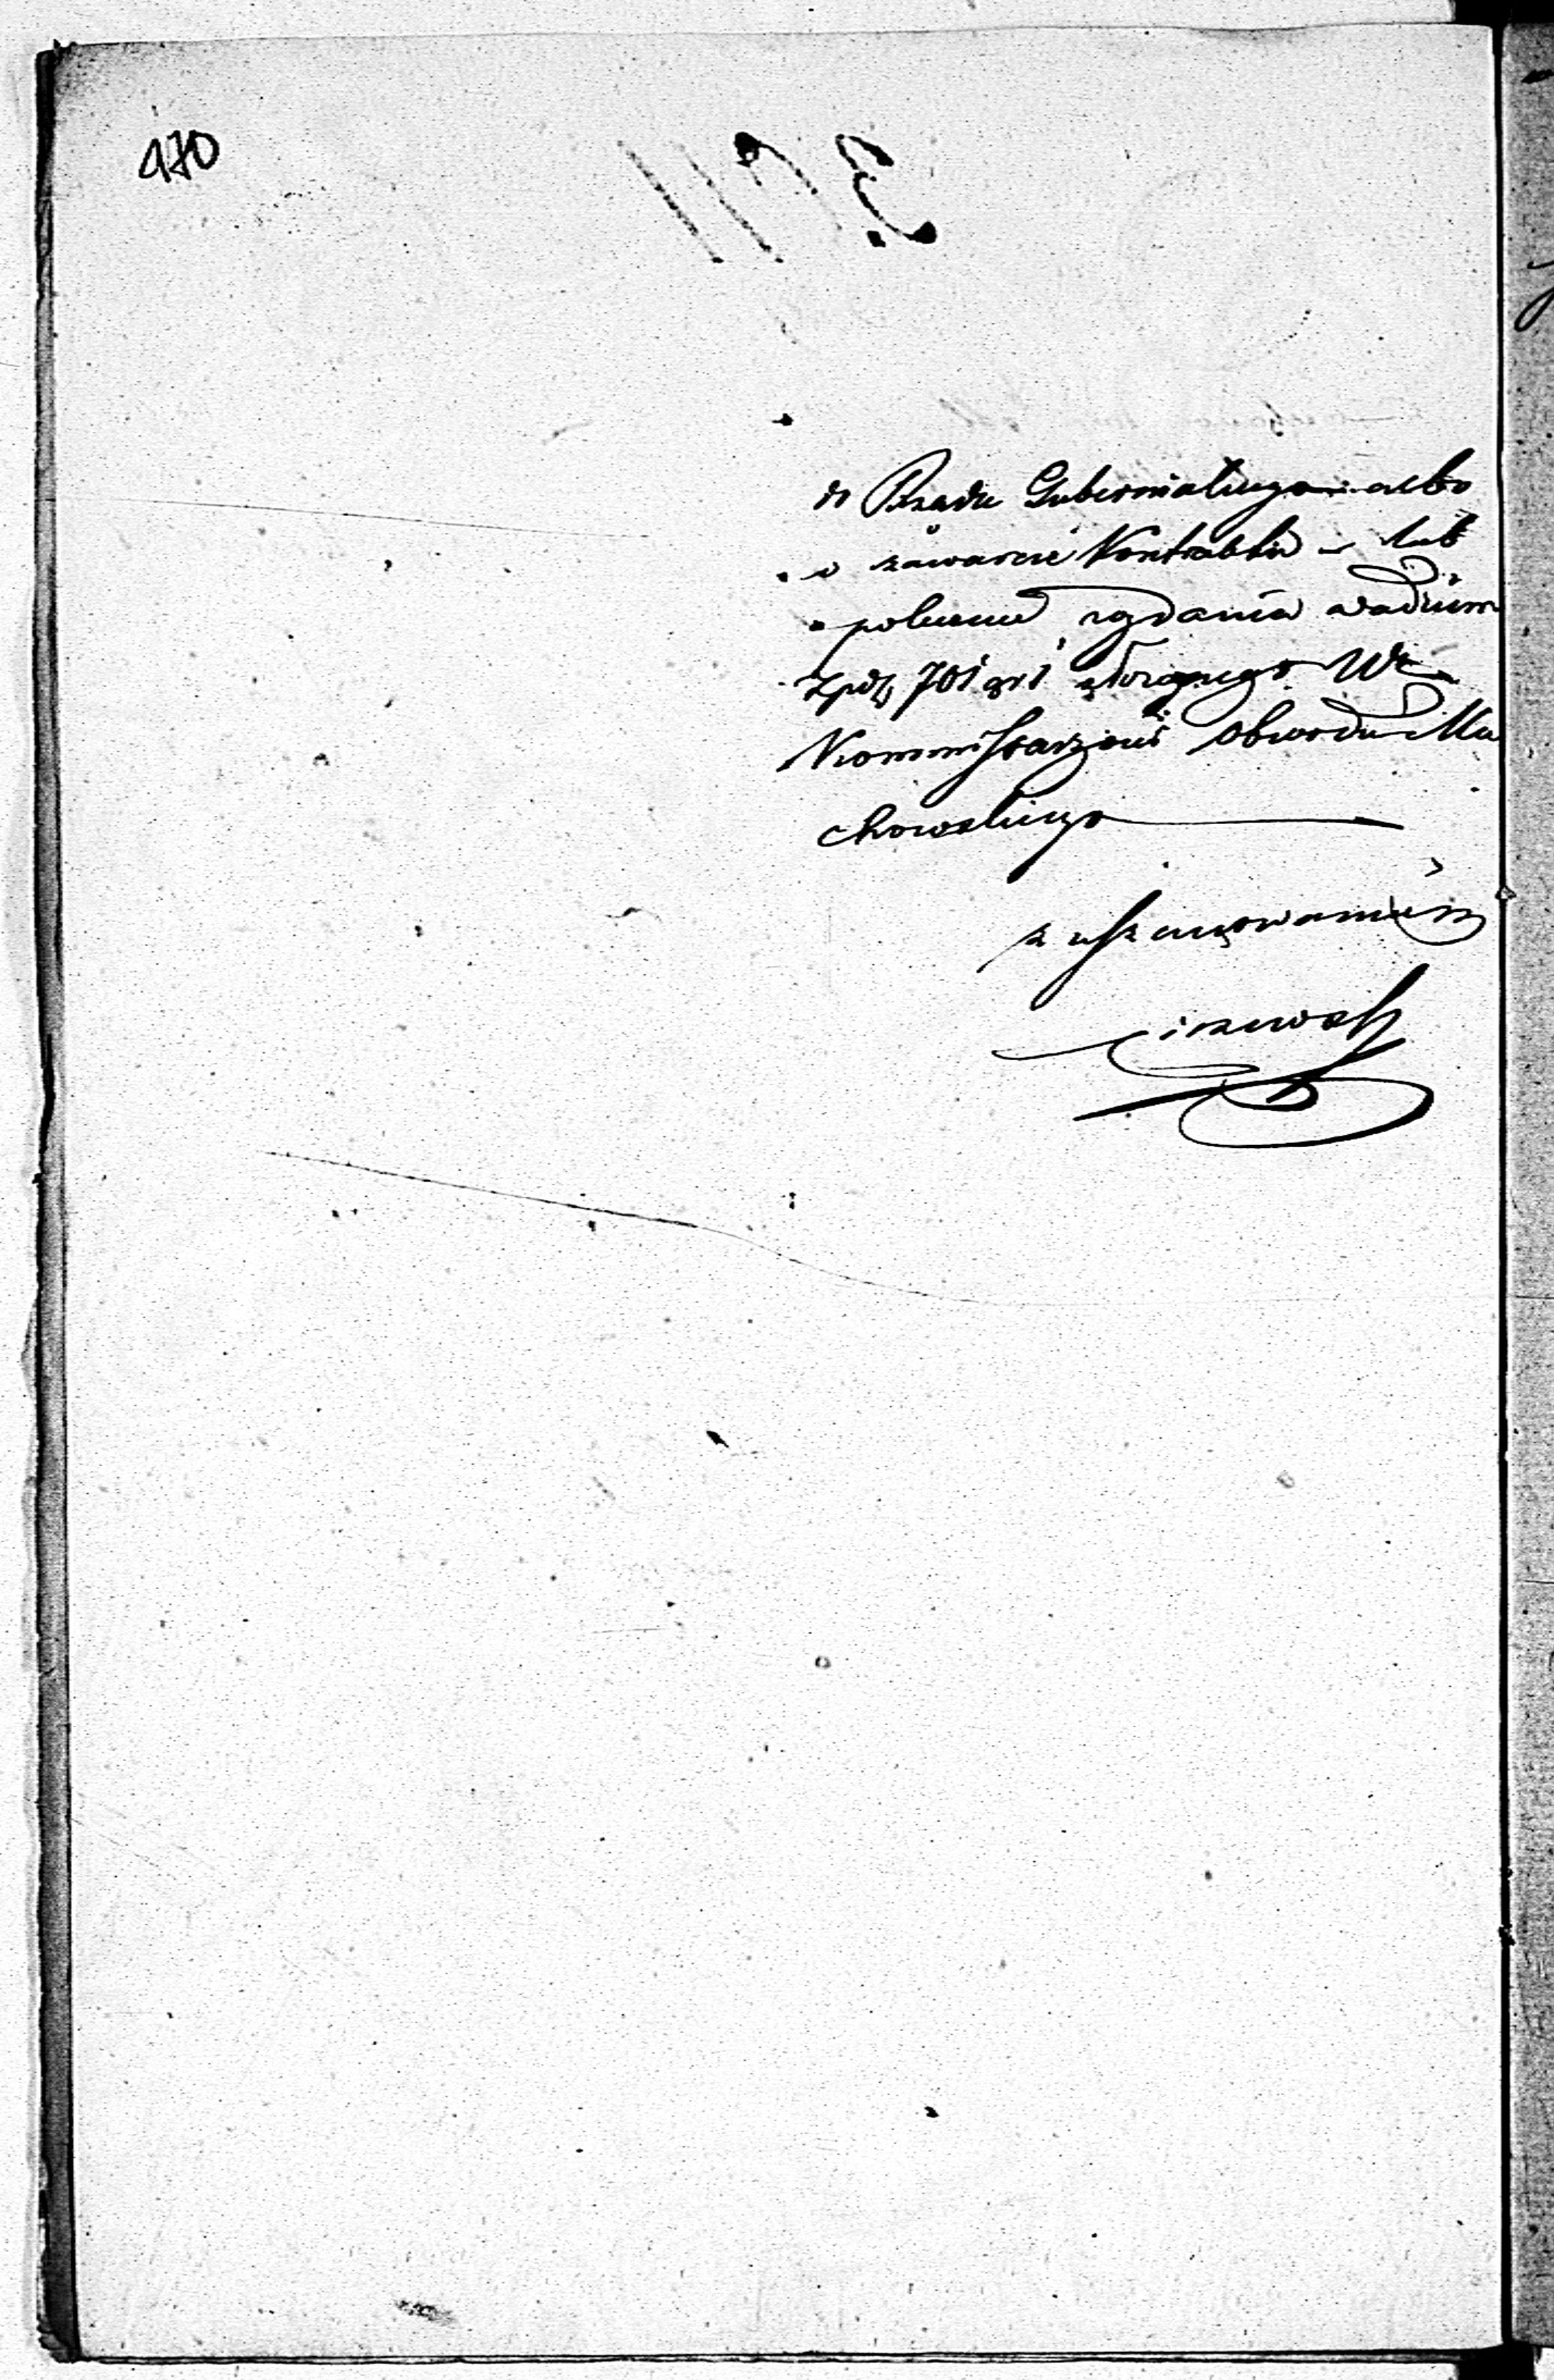 470
do Rządu Gubernialnego albo
o zawarcie Kontraktu – lub
o polecenie wydania wadium
701 gr 1 złożonego W
Kommissarzowi Obwodu Mie
chowskiego
z uszanowaniem